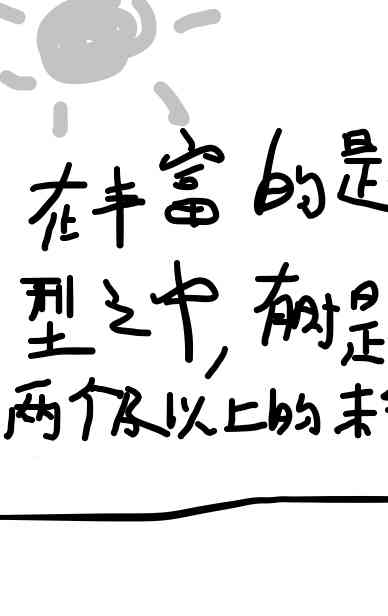 在丰富的是
型之中,有时是
两个及以上的